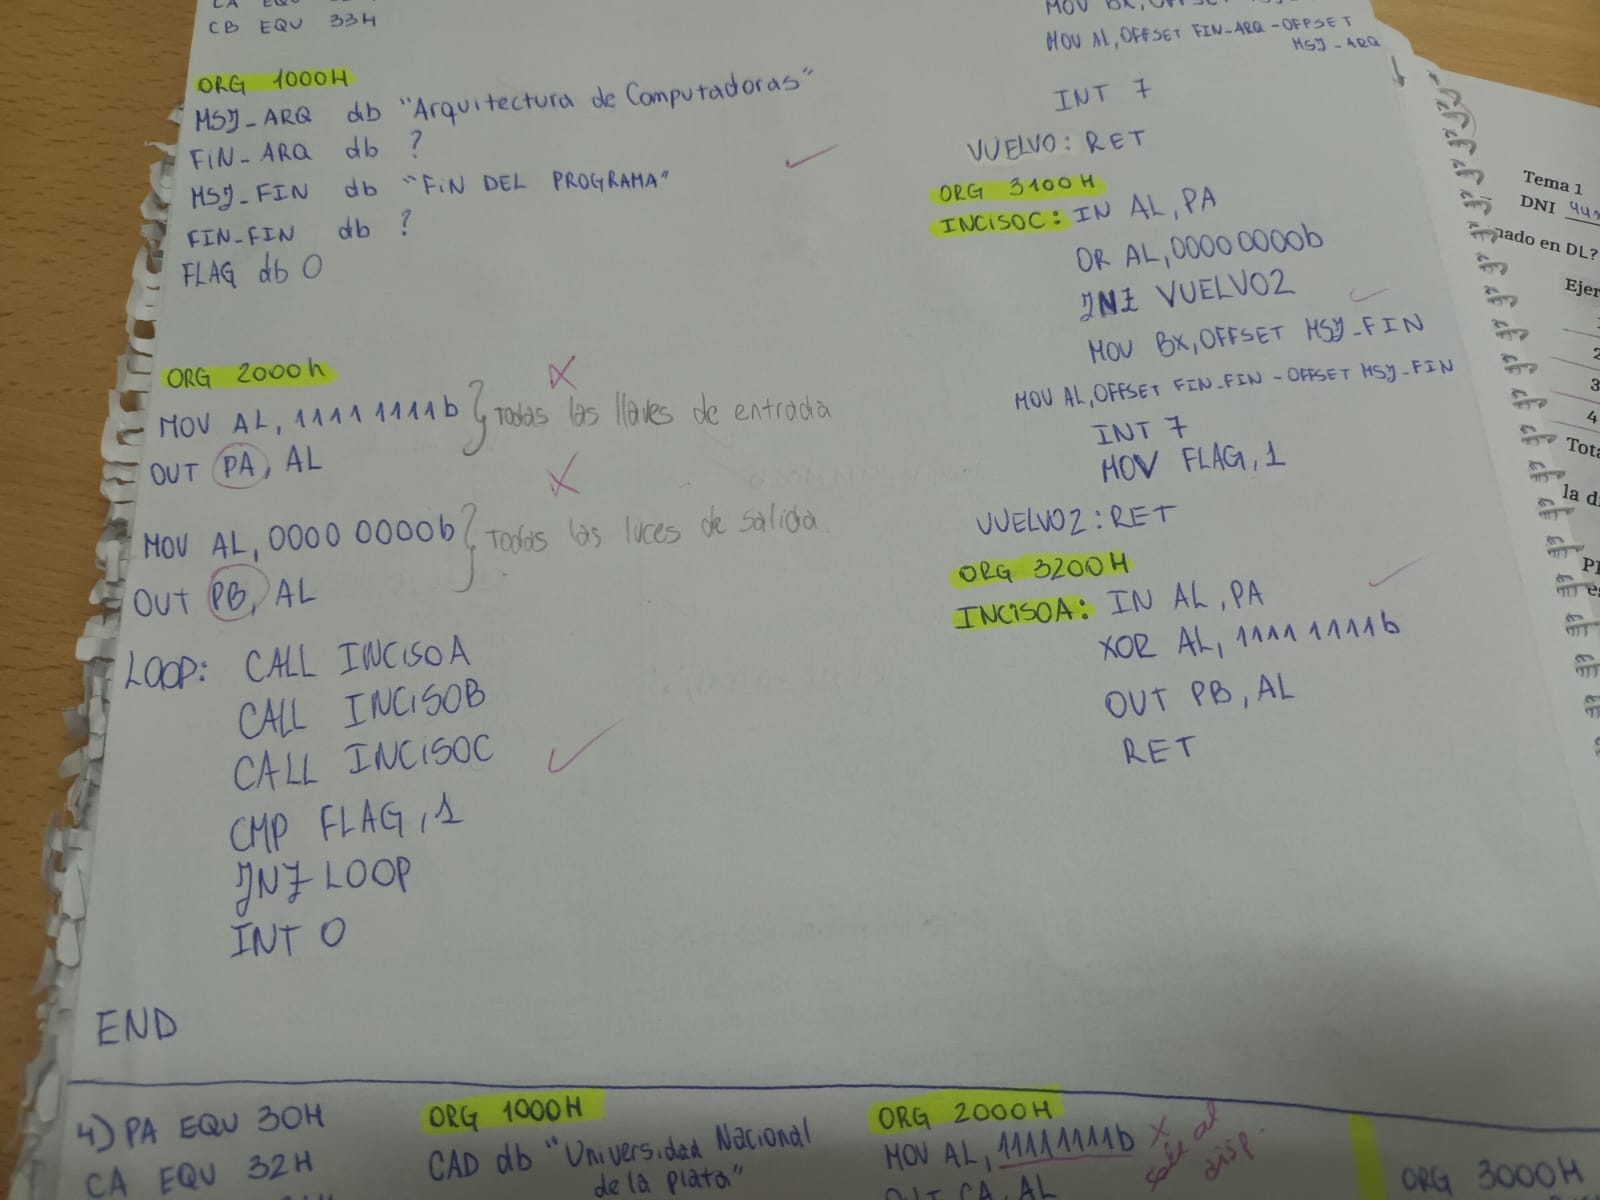 CB EQU 33H
ORG 1000H
MSJ_ARQ db "Arquitectura de Computadoras"
FIN_ARQ db ?
MSJ_FIN db "FIN DEL PROGRAMA"
FIN_FIN db ?
FLAG db 0
ORG 2000h
MOV AL, 1111 1111b } Todas las llaves de entrada
OUT PA, AL
MOV AL, 0000 0000b } Todas las luces de salida.
OUT PB, AL
LOOP: CALL INCISOA
CALL INCISOB
CALL INCISOC
CMP FLAG, 1
JNZ LOOP
INT 0
END
MOV AL, OFFSET FIN_ARQ - OFFSET
MSJ_ARQ
INT 7
VUELVO: RET
ORG 3100H
INCISOC: IN AL, PA
OR AL, 0000 0000b
JNZ VUELVO2
MOV BX, OFFSET MSJ_FIN
MOV AL, OFFSET FIN_FIN - OFFSET MSJ_FIN
INT 7
MOV FLAG, 1
VUELVO2: RET
ORG 3200H
INCISOA: IN AL, PA
XOR AL, 1111 1111b
OUT PB, AL
RET
4) PA EQU 30H
CA EQU 32H
ORG 1000H
CAD db "Universidad Nacional
de la plata"
ORG 2000H
MOV AL, 11111111b
sale al
disp.
OUT CA, AL
ORG 3000H
Tema 1
DNI
nado en DL?
Ejer
2
3
4
Tota
la d